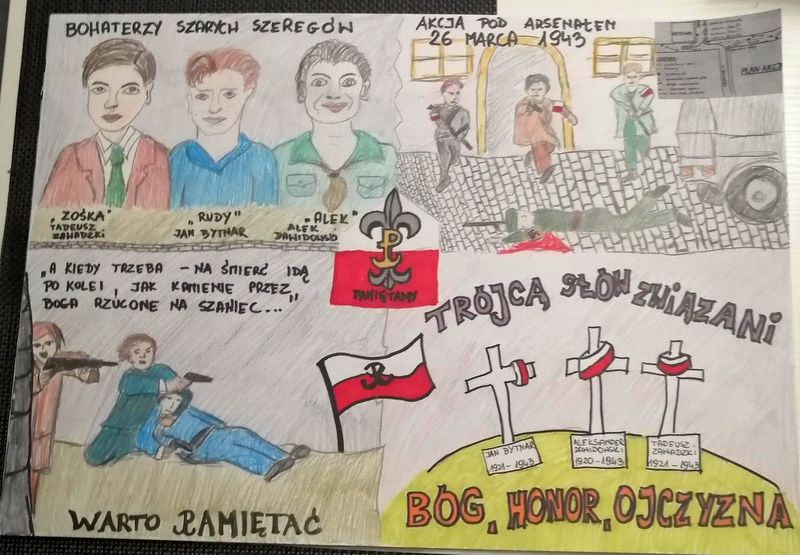 BOHATERZY SZARYCH SZEREGÓW
"ZOŚKA"
TADEUSZ
ZAWADZKI
"RUDY"
JAN BYTNAR
"ALEK"
ALEK
DAWIDOWSKI
AKCJA POD ARSENAŁEM
26 MARCA 1943
PLAN AKCJI
"A KIEDY TRZEBA – NA ŚMIERĆ IDĄ
PO KOLEI, JAK KAMIENIE PRZEZ
BOGA RZUCONE NA SZANIEC..."
WARTO PAMIĘTAĆ
PAMIĘTAMY
TRÓJCĄ SŁÓW ZWIĄZANI
JAN BYTNAR
1921-1943
ALEKSANDER
DAWIDOWSKI
1920-1943
TADEUSZ
ZAWADZKI
1921-1943
BÓG, HONOR, OJCZYZNA